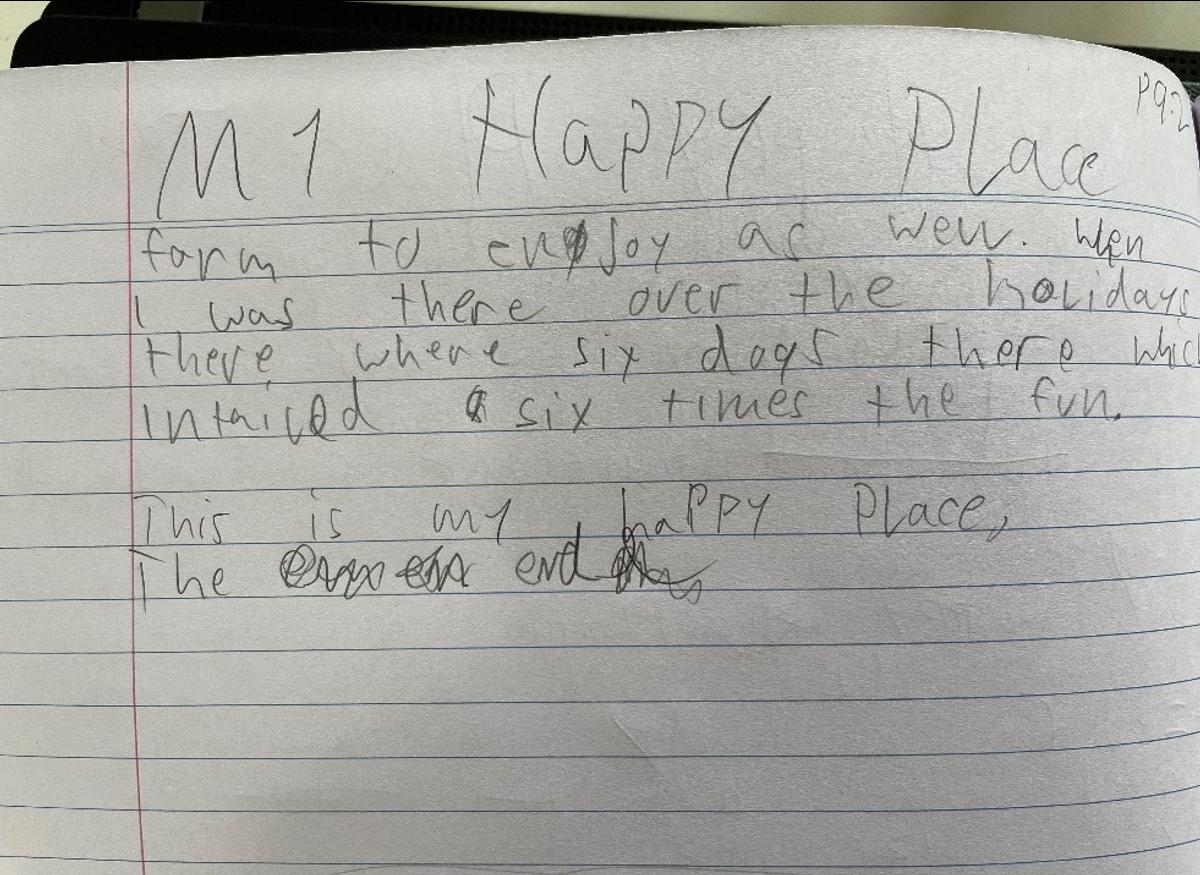 My Happy Place
pg.2
farm to enjoy as well. when
I was there over the holidays
there where six dogs there which
intailed six times the fun.
This is my happy place,
The end